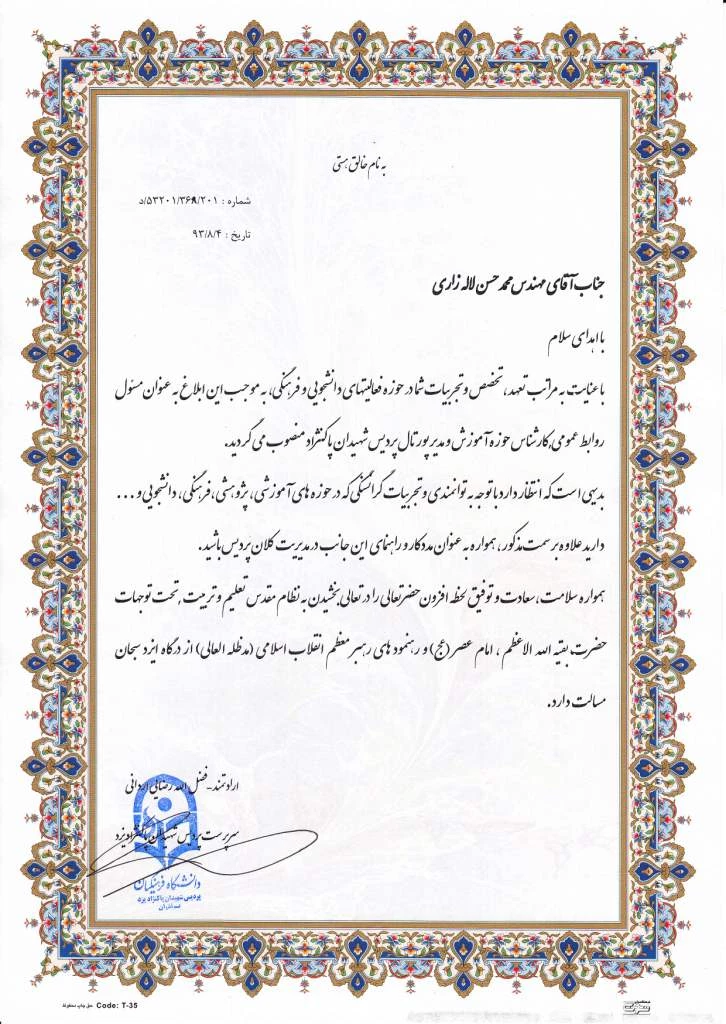 به نام خالق هستی
شماره : ۵۳۲۰۱/۳۶۸/۲۰۱/د
تاریخ : ۹۳/۸/۴
جناب آقای مهندس محمد حسن لاله زاری
با اهدای سلام
با عنایت به مراتب تعهد، تخصص و تجربیات شما در حوزه فعالیتهای دانشجویی و فرهنگی، به موجب این ابلاغ به عنوان مسئول
روابط عمومی، کارشناس حوزه آموزش و مدیر پورتال پردیس شهیدان پاکنژاد منصوب می گردید.
بدیهی است که انتظار دارد با توجه به توانمندی و تجربیات گرانسنگی که در حوزه های آموزشی، پژوهشی، فرهنگی، دانشجویی و ...
دارید علاوه بر سمت مذکور، همواره به عنوان مددکار و راهنمای این جانب در مدیریت کلان پردیس باشید.
همواره سلامت، سعادت و توفیق لحظه افزون حضرتعالی را در تعالی بخشیدن به نظام مقدس تعلیم و تربیت، تحت توجهات
حضرت بقیه الله الاعظم ، امام عصر (عج) و رهنمود های رهبر معظم انقلاب اسلامی (مدظله العالی) از درگاه ایزد سبحان
مسالت دارد.
ارادتمند- فضل الله رضایی اردانی
سرپرست پردیس شهیدان پاکنژاد یزد
دانشگاه فرهنگیان
پردیس شهیدان پاکنژاد یزد
حق چاپ محفوظ Code: T-35